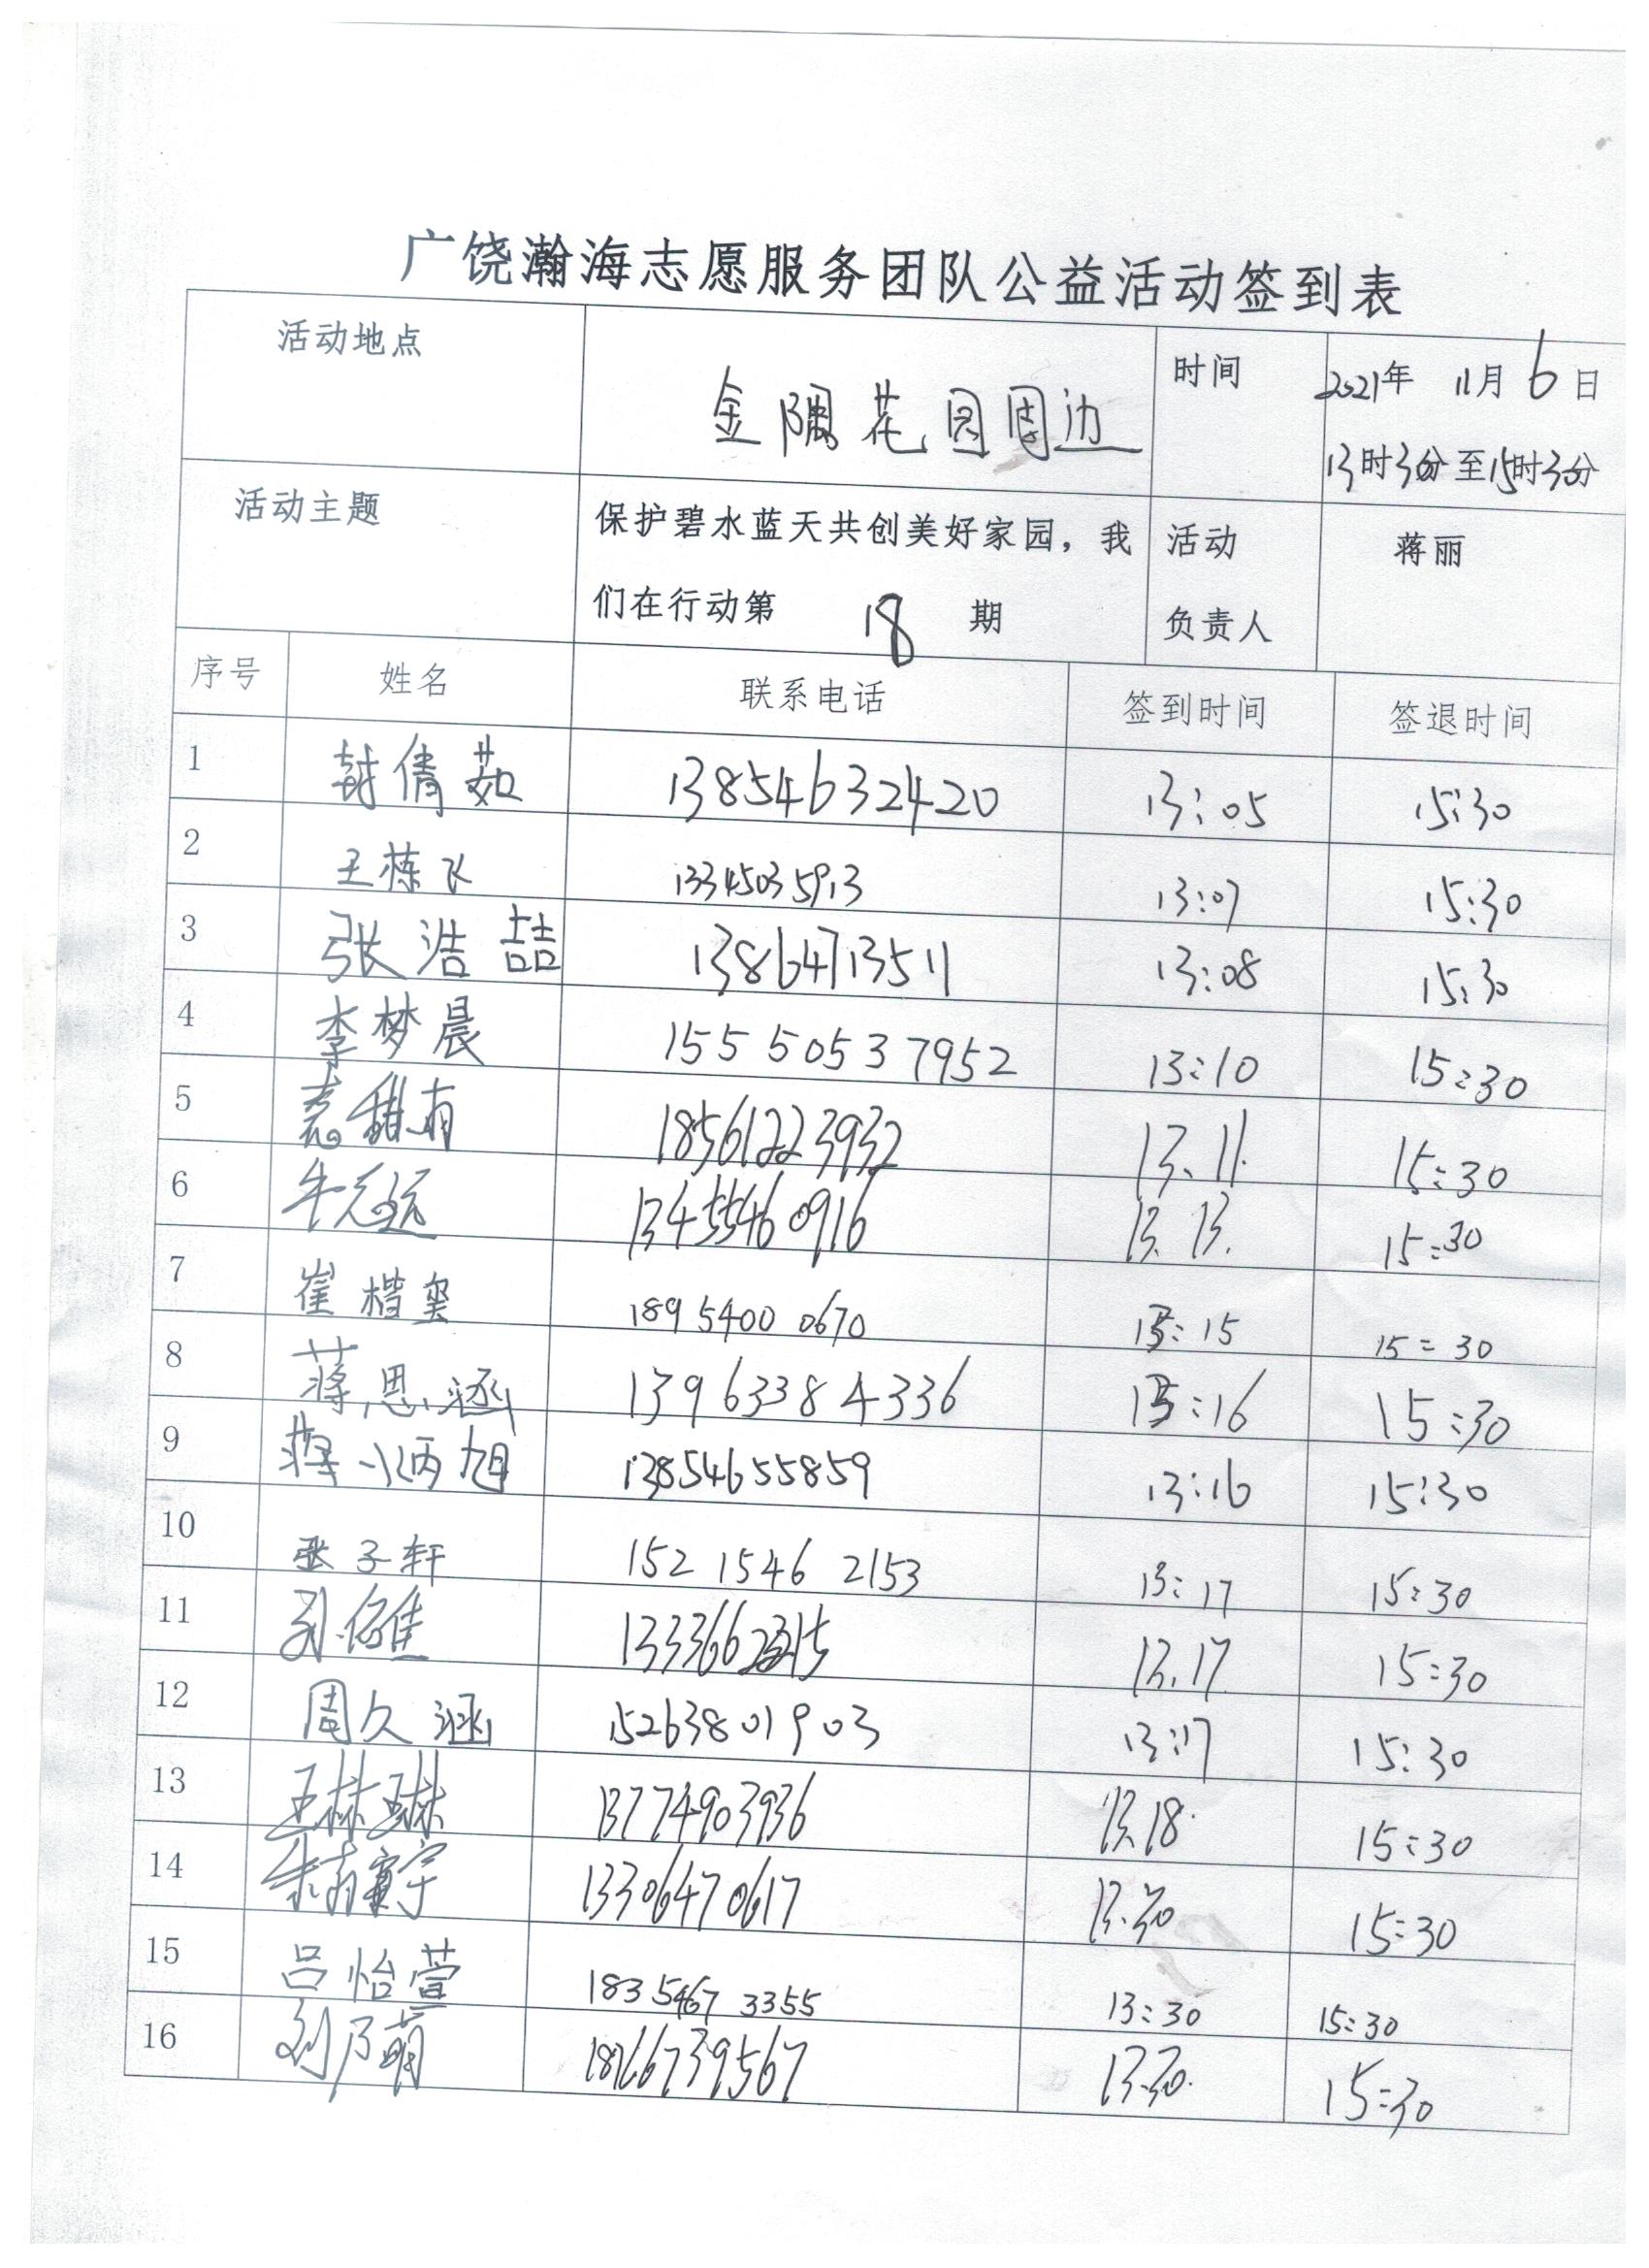 广饶瀚海志愿服务团队公益活动签到表
活动地点 金隅花园周边 时间 2021年 11月 6日
13时30分至15时30分
活动主题 保护碧水蓝天共创美好家园，我 活动 蒋丽
们在行动第 18 期 负责人
序号 姓名 联系电话 签到时间 签退时间
1 封倩茹 13854632420 13:05 15:30
2 王栋飞 13345035913 13:07 15:30
3 张浩喆 13864713511 13:08 15:30
4 李梦晨 155 5053 7952 13:10 15:30
5 18561223932 13.11. 15:30
6 13455460916 13.13. 15:30
7 崔楷玺 189 5400 0670 13:15 15:30
8 蒋恩涵 13963384336 13:16 15:30
9 蒋炳旭 13854655859 13:16 15:30
10 张子轩 152 1546 2153 13:17 15:30
11 13.17. 15:30
12 周久涵 15263801903 13:17 15:30
13 王琳琳 13774903936 13.18. 15:30
14 13306470617 13.30 15:30
15 吕怡萱 183 5467 3355 13:30 15:30
16 刘乃萌 18766739567 13.30. 15:30